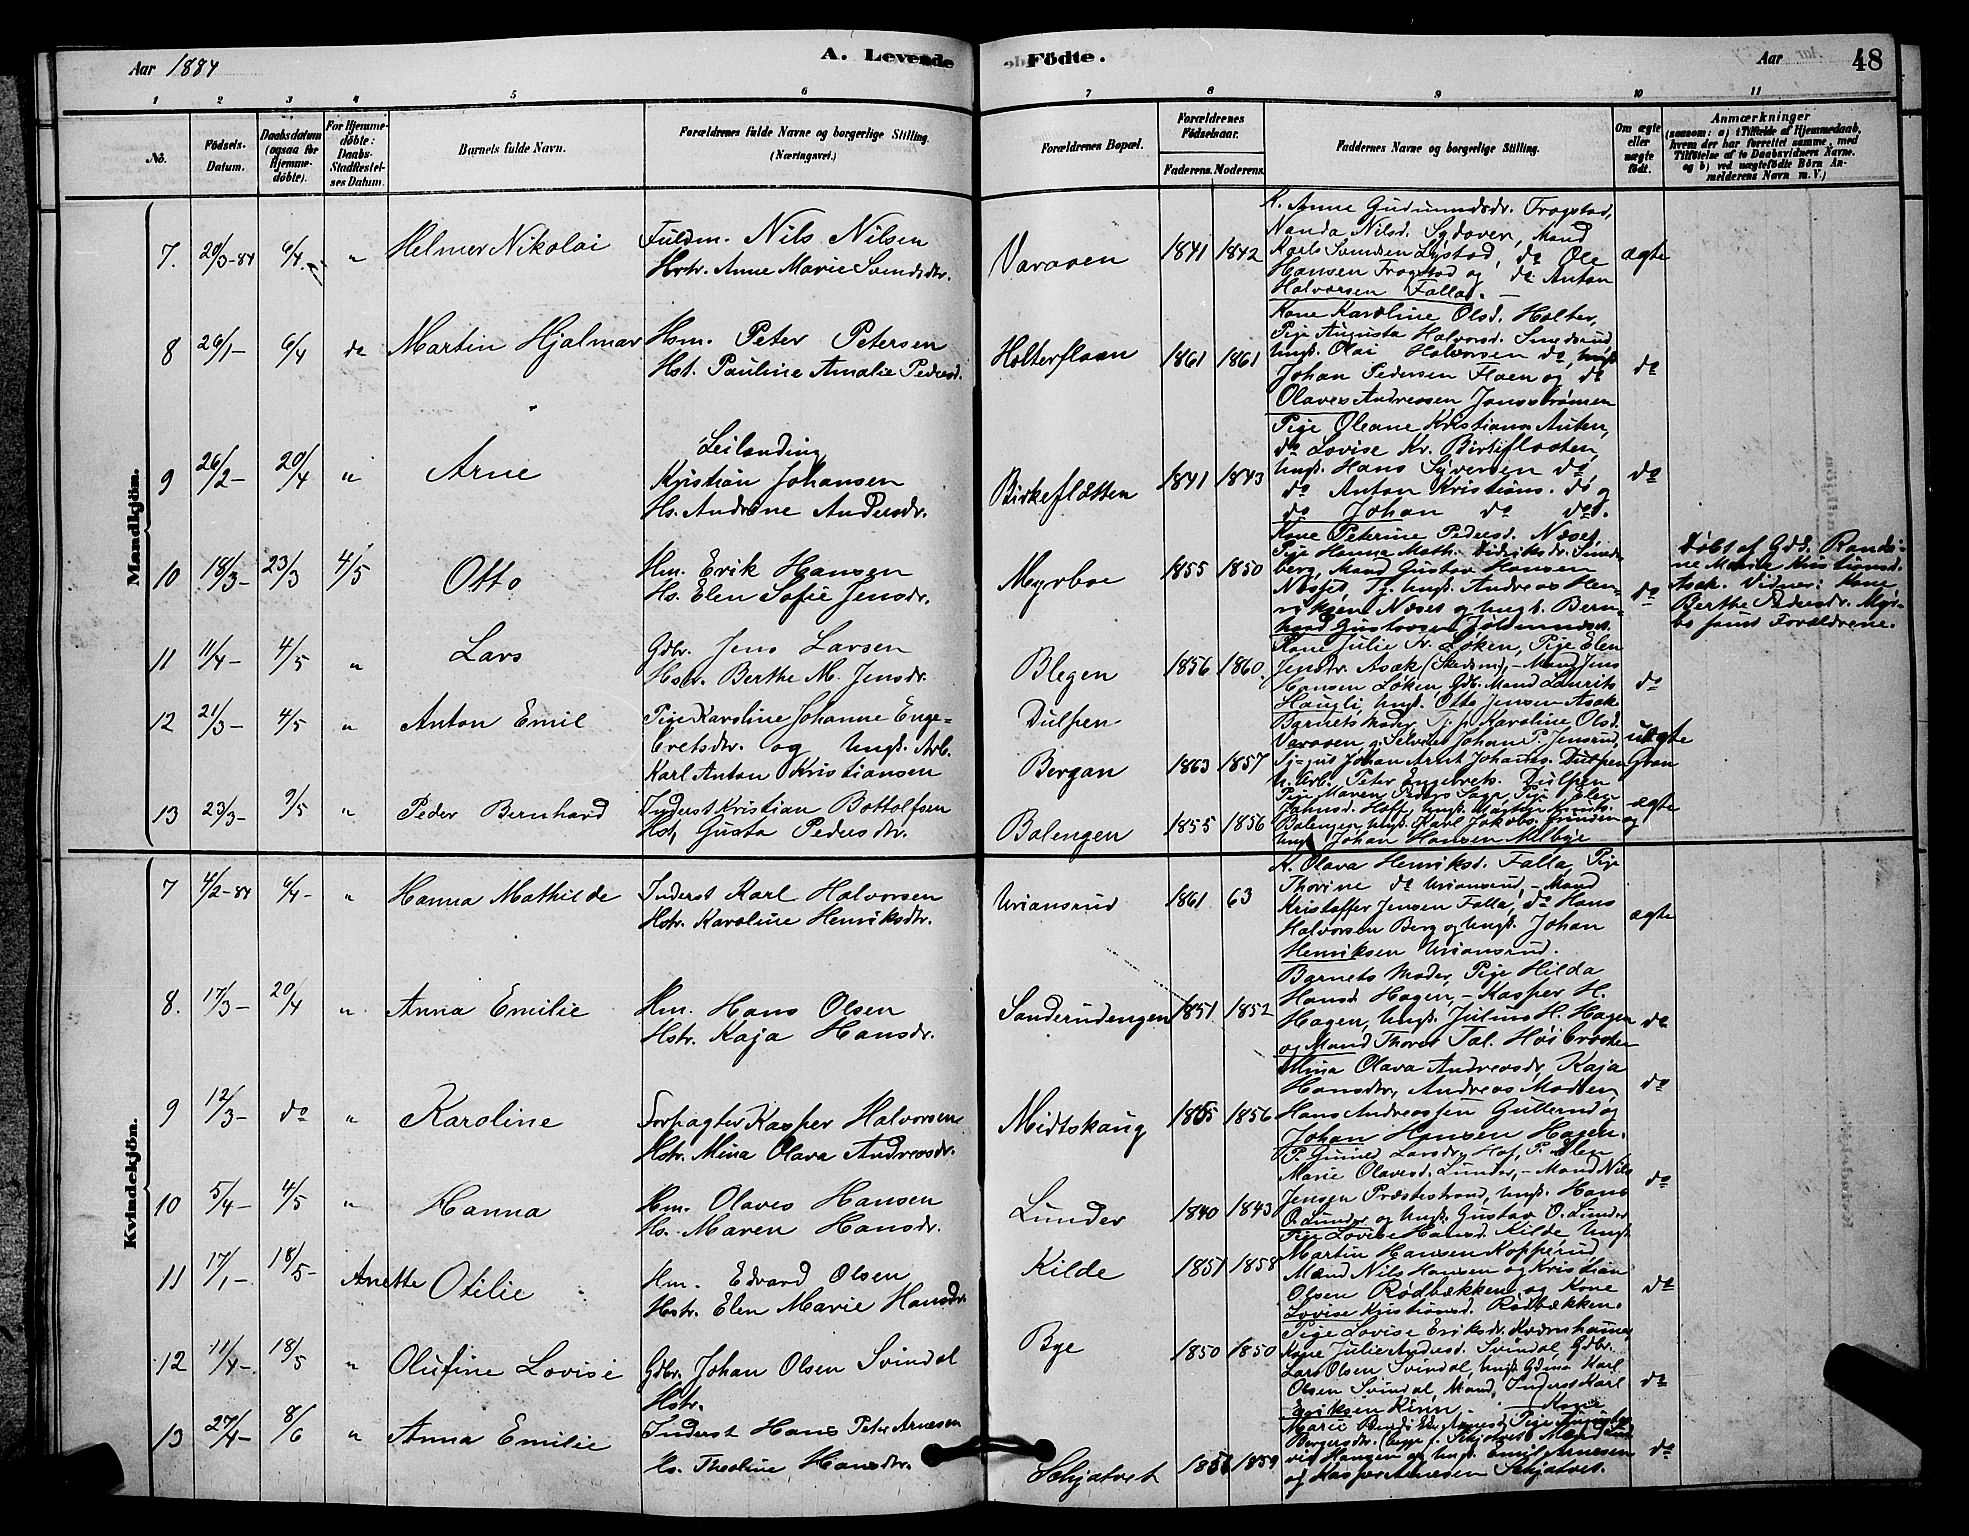 Aar 1884
A. Levende
Födte.
Aar
48
1 2 3 4 5 6 7 8 9 10 11
No.
Födsels-Datum.
Daabsdatum (ogsaa for Hjemme-döbte).
For Hjemme-döbte: Daabs-Stadfæstel-ses Datum.
Barnets fulde Navn.
Forældrenes fulde Navne og borgerlige Stilling.
(Næringsvei.)
Forældrenes Bopæl.
Forældrenes Födselsaar.
Faderens. Moderens.
Faddernes Navne og borgerlige Stilling.
Om ægte eller uægte födt.
Anmærkninger
(saasom: a) i Tilfælde af Hjemmedaab,
hvem der har forrettet samme, med
Tilföielse af to Daabsvidners Navne,
og b) ved uægtefödte Börn An-
melderens Navn m. V.)
Mandkjön.
7. 20/3-84 6/4 " Helmer Nikolai
Fuldm. Nils Nilsen
Hstr. Anne Marie Svendsdtr.
Varaaen 1841 1842
K. Anne Gudmundsdr. Frogstad,
Nanda Nilsd. Sydaven, Mand
Karls Svendsen Lystad, do Ole
Hansen Frogstad og do Anton
Halvorsen Falla. —
ægte
8 26/1- 6/4 do Martin Hjalmar
Hsm. Peter Petersen
Hst. Pauline Amalie Pedersd.
Holterflaan 1861 1861
Kone Karoline Olsd. Holter,
Pige Augusta Halvorsd. Smedsrud,
Ungk. Olai Halvorsen do, Ungk
Johan Pedersen Flaen og do
Olaves Andreasen Jonsstrømen
do
9 26/2- 20/4 " Arne
Leilænding
Kristian Johansen
Hs. Andrine Andersdr.
Birkeflætten 1841 1843
Pige Oleane Kristians. Auten,
do Lovise Kr. Birkeflaaten,
Ungk. Hans Syversen do,
do Anton Kristians. do og
do Johan do do.
do
10 18/3- 23/3 4/5 Otto
Hm. Erik Hansen
Hs. Elen Sofie Jensdr.
Myrboe 1855 1850
Kone Peterine Pedersd. Næset,
Pige Hanna Math. Didriksdr. Smed-
berg, Mand Gustav Hansen
Næset, Ungk. Andreas Hen-
riksen Næset og Ungk. Bern-
hard Gustavsen
do
Døbt af Gdd. Randi-
ne Marie Kristiansd.
Asak. Vidner: Kone
Berthe Pedersdr. Myr-
bo samt Forældrene.
11 11/4- 4/5 " Lars
Gdbr. Jens Larsen
Hstr. Berthe M. Jensdr.
Blegen 1856 1860
Kone Julie Fr. Løken, Pige Elen
Jensdtr. Asak (Skedsm), – Mand Jens
Hansen Løken, Gdb. Mand Laurits
Haugli, Ungk. Otto Jensen Asak
do
12 21/3- 4/5 " Anton Emil
Pige Karoline Johanne Enge-
bretsdtr. og Ungk. Arb.
Karl Anton Kristiansen
Dulpen
Bergan 1863 1857
Barnets Moder, Karoline Olsd.
Varaaen, Johan P. Jensrud,
Johan Arnt Johans. Dulpen
Arb. Peter Engebrets. Dulpen
uægte
13 23/3- 9/5 " Peder Bernhard
Inderst Kristian Bottolfsen
Hst. Gusta Pedersdtr.
Balengen 1855 1856
Pige Maren Peders. Pige Elen
Johnsd. Hoff, Ungk. Martin Kristi.
Balengen, Ungk. Karl Jakobs. Grinden og
Ungk Johan Hansen Melbye
ægte
Kvindekjön.
7 4/2-84 6/4- " Hanna Mathilde
Inderst Karl Halvorsen
Hstr. Karoline Henriksdtr.
Uriansrud 1861 63
K. Olava Henriksd. Falla, Pige
Thorine do Uriansrud, – Mand
Kristoffer Jensen Falla, do Hans
Halvorsen Berg og Ungk. Johan
Henriksen Uriansrud.
ægte
8. 17/3- 20/4 " Anna Emilie
Hm. Hans Olsen
Hstr. Kaja Hansdr.
Sanderudengen 1851 1852
Barnets Moder, Pige Hilda
Hansd. Hagen, – Kasper H.
Hagen, Ungk. Julius H. Hagen
og Mand Thorer Tal. Høibraaten
do
9 12/3- do " Karoline
Forpagter Kasper Halvorsen
Hstr. Mina Olava Andreasdr.
Midtskaug 1855 1856
Mina Olava Andreasdr, Kaja
Hansdtr, Andreas Madsen,
Hans Andreassen Gullerud og
Johan Hansen Hagen.
do
10 5/4- 4/5 " Hanna
Hm. Olaves Hansen
Hs. Maren Hansdr.
Lunder 1840 1843
P. Gunild Larsdr. Hof, P. Elen
Marie Olavesd. Lunder, – Mand Nils
Jensen Præstestrand, Ungk. Hans
O. Lunder og Ungk. Gustav O. Lunder
do
11 17/1- 18/5- Anette Otilie
Hm. Edvard Olsen
Hstr. Elen Marie Hansdr.
Kilde 1851 1858
Pige Lovise Hansd. Kilde, Ungk.
Martin Hansen Kopperud
Mand Nils Hansen og Kristian
Olsen Rødbækken, og Kone
Lovise Kristiansd. Rødbækken.
do
12 11/4- 18/5 " Olufine Lovise
Gdbr. Johan Olsen Svindal
Hstr.
Bye 1850 1850
Pige Lovise Eriksdr. Kværnhaug,
Kone Julie Andresd. Svindal, Gdbr.
Lars Olsen Svindal, Ungk. Gdms. Karl
Olsen Svindal, Mand, Inderst Karl
Eriksen Kinn. —
do
13 27/4- 8/6 " Anna Emilie
Inderst Hans Peter Arnesen
Hs. Theoline Hansdr.
Schjatvet 1856 1859
Kone
Marie
Bergersdtr. (begge f. Skjatvet) Mand
Hansen og Ungk. Emil Arnesen
og Kasper Arnesen Schjatvet.
do